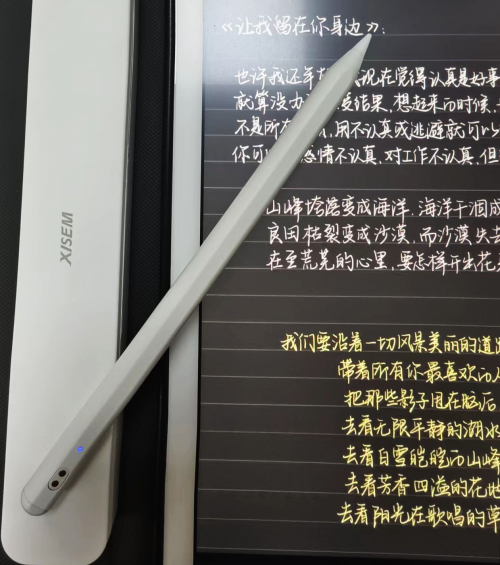 XISEM
《让我留在你身边》:
也许我还年 现在觉得认真是好事
就算没办 结果,想起来的时候
不是所有 用不认真或逃避就可以
你可 感情不认真,对工作不认真,但
山峰垮塌变成海洋,海洋干涸成
良田枯裂变成沙漠,而沙漠失去
在至荒芜的心里,要怎样开出花
我们要沿着一切风景美丽的道路
带着所有你最喜欢的
把那些影子甩在脑后
去看无限平静的湖水
去看白雪皑皑的山峰
去看芳香四溢的花
去看阳光在歌唱的草